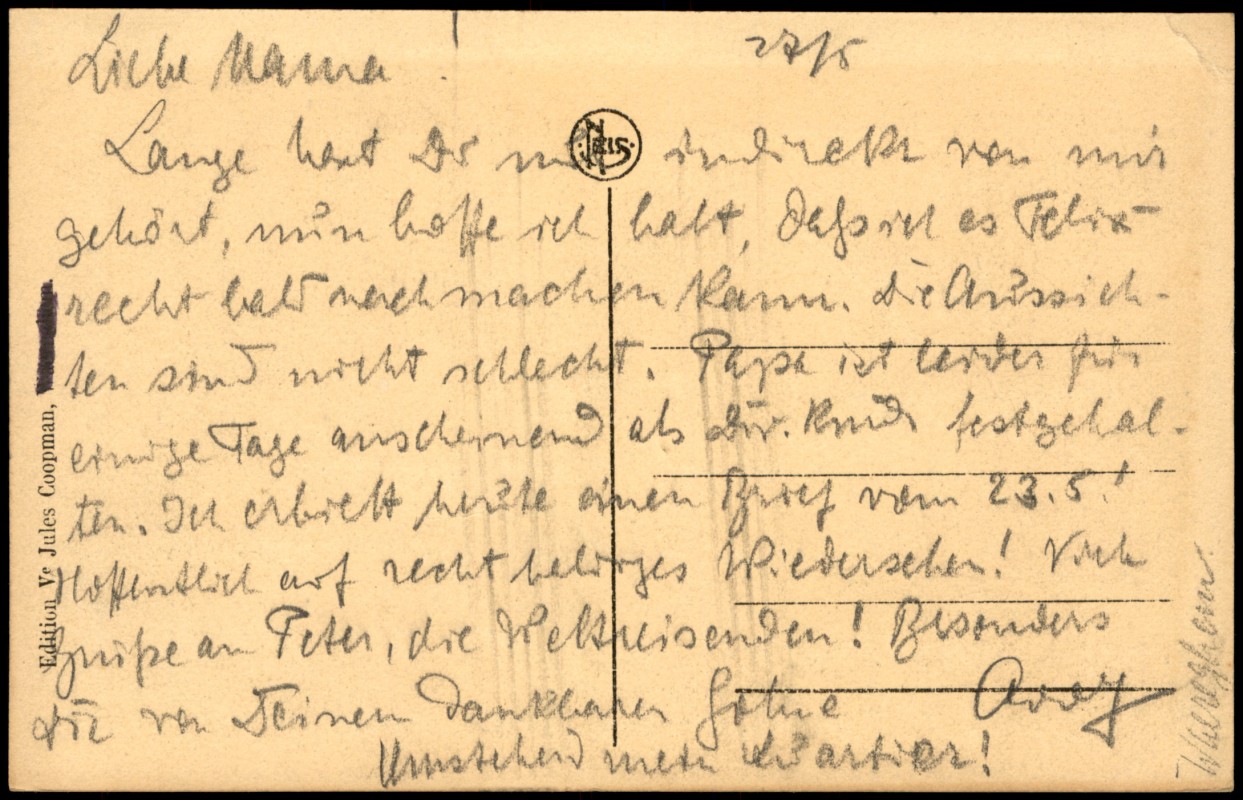 27/5
Liebe Mama!
Lange hast Du nur indirekt von mir
gehört, nun hoffe ich halt, daß ich es Felix
recht bald nachmachen kann. Die Aussich-
ten sind nicht schlecht. Papa ist leider für
einige Tage anscheinend als festgehal-
ten. Ich erhielt heute einen Brief vom 23.5.!
Hoffentlich auf recht baldiges Wiedersehen! Viele
Grüße an Peter, die Weltreisenden! Besonders
Dir von Deinem dankbaren Sohne
Umstehend mein Quartier!
NELS
Edition Ve Jules Coopman,